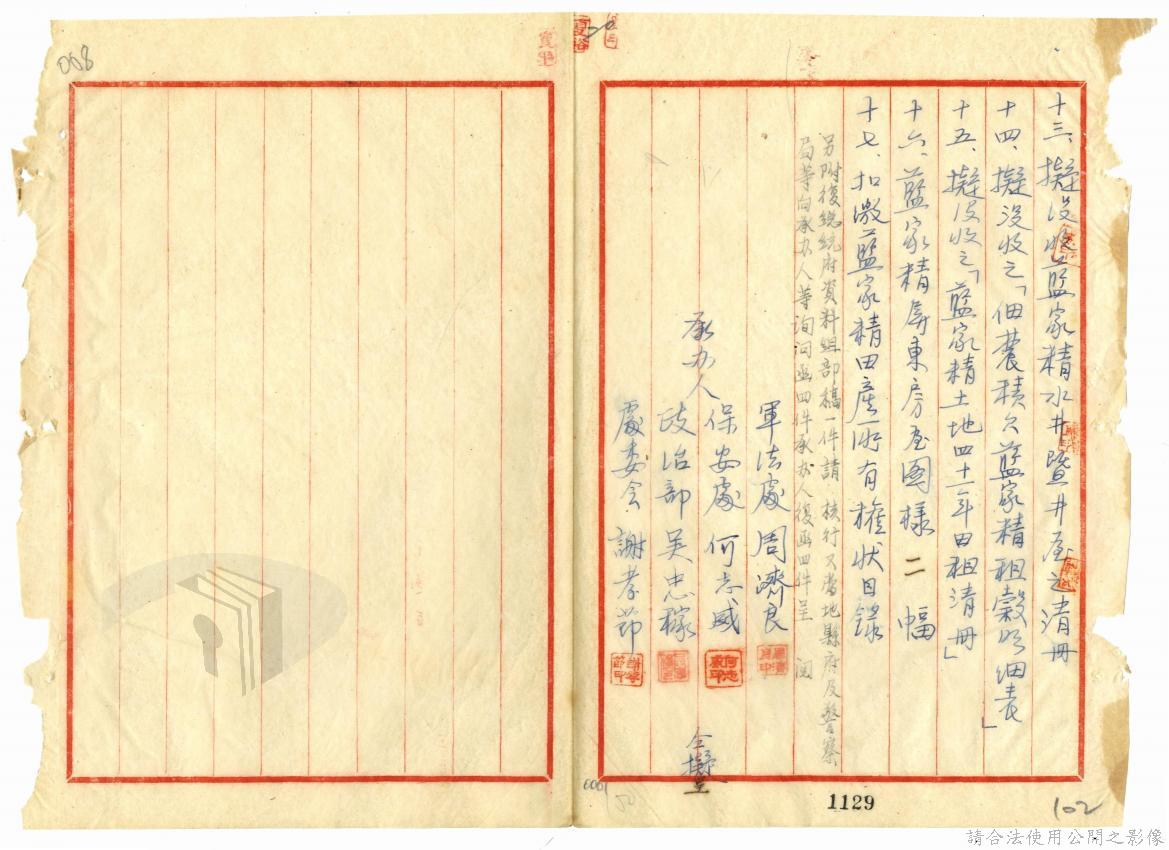 十三、擬沒收藍家精水井暨井屋之清冊
十四、擬沒收之「佃農積欠藍家精租穀明細表」
十五、擬沒收之「藍家精土地四十一年田租清冊」
十六、藍家精屏東房屋圖樣二幅
十七、扣繳藍家精田產所有權狀目錄
另附復總統府資料組部稿一件請 核行又當地縣府及警察
局等向承办人等詢问函四件承办人復函四件呈 閱
承办人
軍法處 周濟良
保安處 何志威
政治部 吳忠稼
處委会 謝孝節
仝擬呈
008
1129
102
請合法使用公開之影像